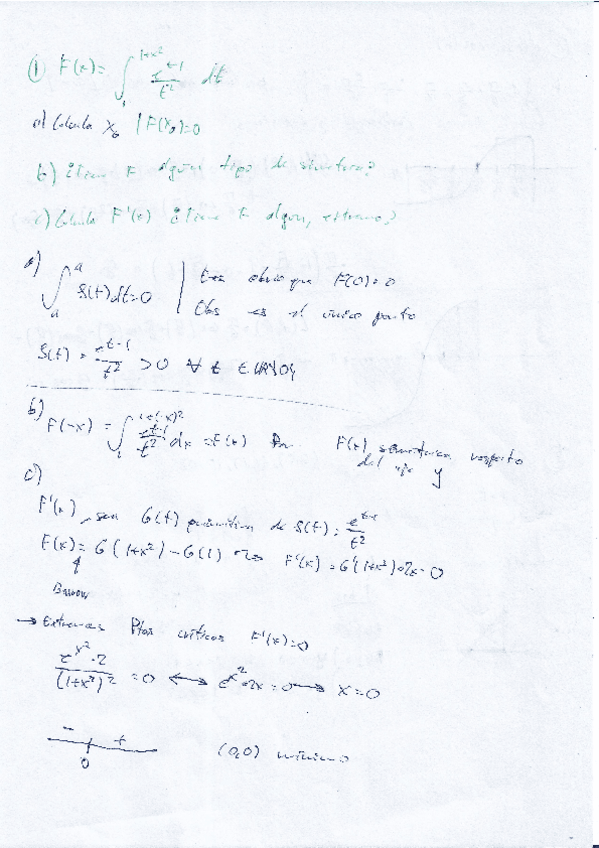 ① F(x) = ∫₁^(1+x²) e^(t-1)/t² dt
a) Calcula x₀ | F(x₀)=0
b) ¿Tiene F algún tipo de simetría?
c) Calcula F'(x) ¿tiene F algún, extremo?
a) ∫ₐ^a f(t)dt=0 | Es obvio que F(0)=0
es el único punto
f(t) = e^(t-1)/t² >0 ∀ t ∈
b) F(-x) = ∫₁^(1+(-x)²) e^(t-1)/t² dx = F(x) F(x) simétrica respecto
del eje y
c)
F'(x), sea G(t) primitiva de f(t) = e^(t-1)/t²
F(x) = G(1+x²) - G(1) F'(x) = G'(1+x²)·2x - 0
↑
Barrow
→ Extremos Ptos críticos F'(x)=0
e^(x²)·2/(1+x²)² = 0 ↔ e^(x²)·2x=0 → x=0
- +
0 (0,0) mínimo